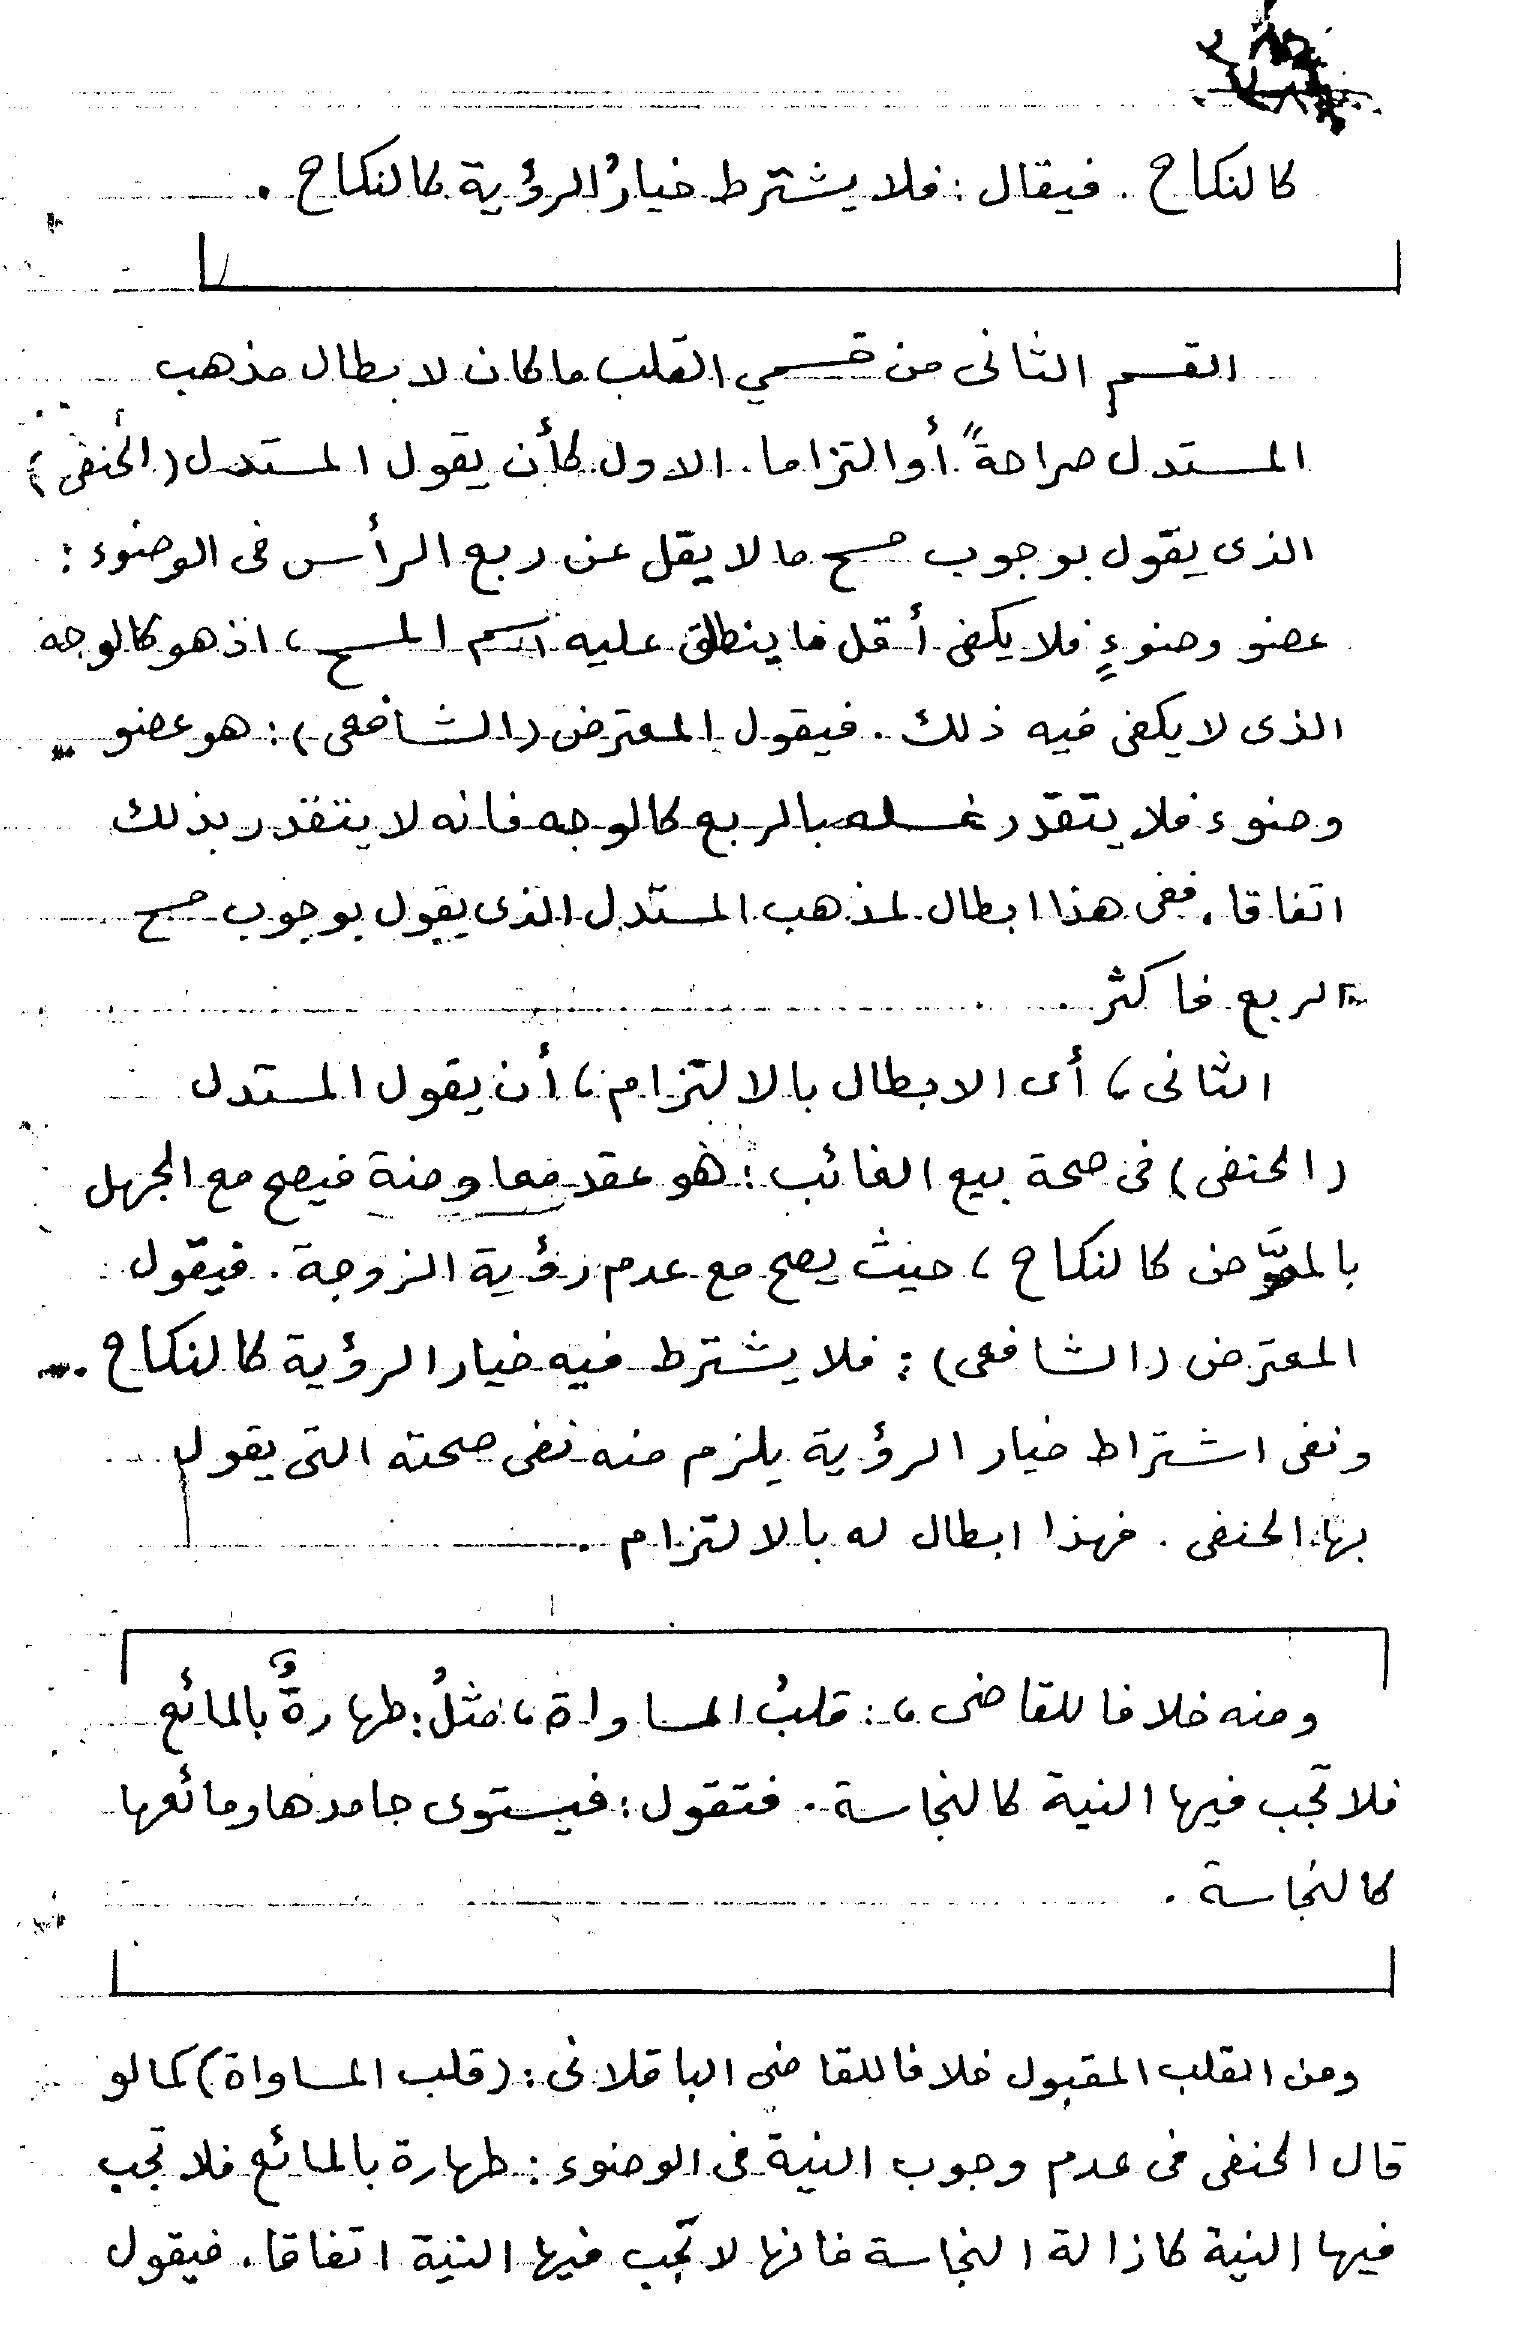 كالنكاح . فيقال : فلا يشترط خيارُ الرؤية كالنكاح .
القسم الثانى من قسمي القلب ما كان لابطال مذهب
المستدل صراحةً أو التزاما . الاول كأن يقول المستدل (الحنفى)
الذى يقول بوجوب مسح ما لا يقل عن ربع الرأس فى الوضوء :
عضو وضوءٍ فلا يكفى أقل ما ينطلق عليه اسم المسح ، اذ هو كالوجه
الذى لا يكفى فيه ذلك . فيقول المعترض (الشافعى) : هو عضو
وضوء فلا يتقدّر غسله بالربع كالوجه فانه لا يتقدر بذلك
اتفاقا . ففى هذا ابطال لمذهب المستدل الذى يقول بوجوب مسح
الربع فاكثر .
الثانى ، أى الابطال بالالتزام ، أن يقول المستدل
(الحنفى) فى صحة بيع الغائب : هو عقد معاوضة فيصح مع الجهل
بالمعوَّض كالنكاح ، حيث يصح مع عدم رؤية الزوجة . فيقول
المعترض (الشافعى) : فلا يشترط فيه خيار الرؤية كالنكاح .
ونفى اشتراط خيار الرؤية يلزم منه نفى صحته التى يقول
بها الحنفى . فهذا ابطال له بالالتزام .
ومنه خلافا للقاضى ، : قلبُ المساواة ، مثلُ : طهارةٌ بالمائع
فلا تجب فيها النية كالنجاسة . فتقول : فيستوى جامدها ومائعها
كالنجاسة .
ومن القلب المقبول خلافا للقاضى الباقلانى : (قلب المساواة) كما لو
قال الحنفى فى عدم وجوب النية فى الوضوء : طهارة بالمائع فلا تجب
فيها النية كازالة النجاسة فانها لا تجب فيها النية اتفاقا . فيقول